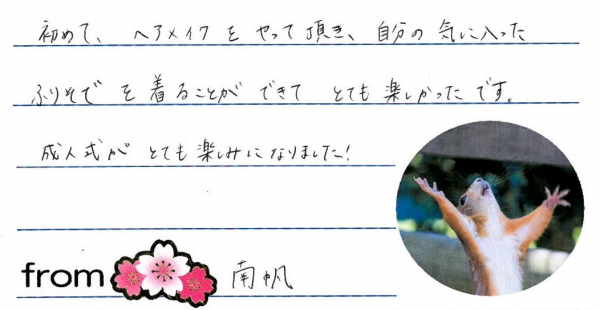 初めて、ヘアメイクをやって頂き、自分の気に入った
ふりそでを着ることができてとても楽しかったです。
成人式がとても楽しみになりました!
from 南帆